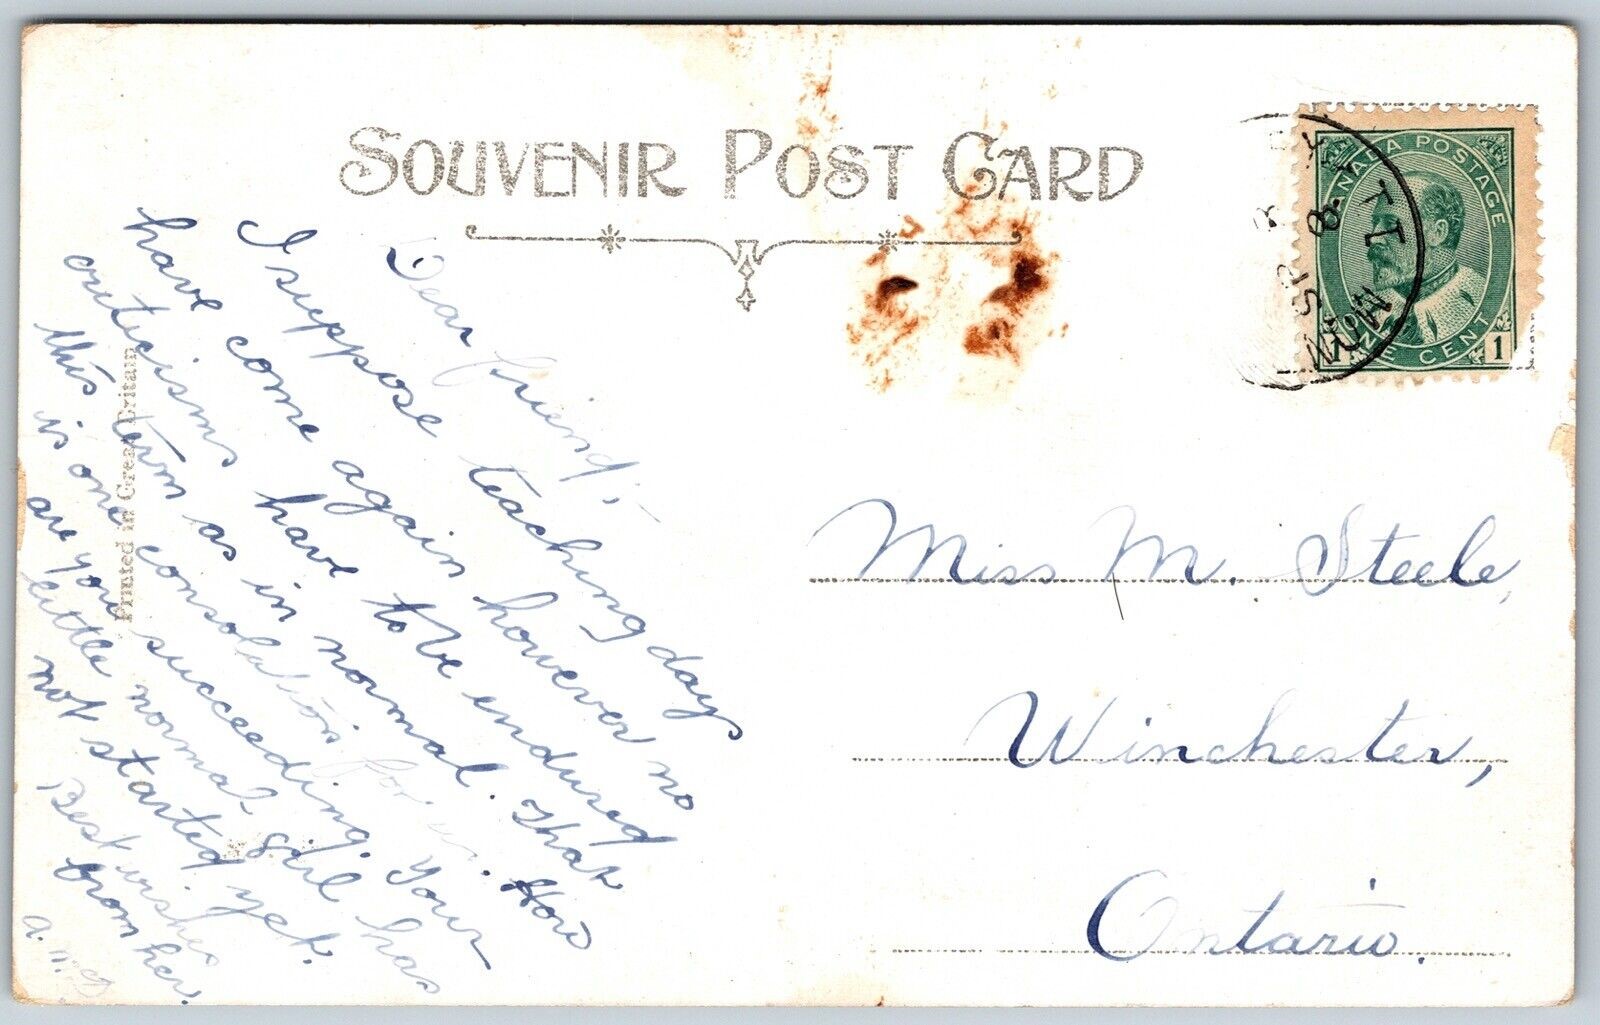 SOUVENIR POST CARD
CANADA POSTAGE
ONE CENT
1 1
Printed in Great Britain
Dear friend:-
I suppose teaching days
have come again however no
criticisms have to be endured
this term as in normal. That
is one consolation for us. How
are you succeeding. Your
little normal girl has
not started yet.
Best wishes
from her.
Miss M. Steele,
Winchester,
Ontario.